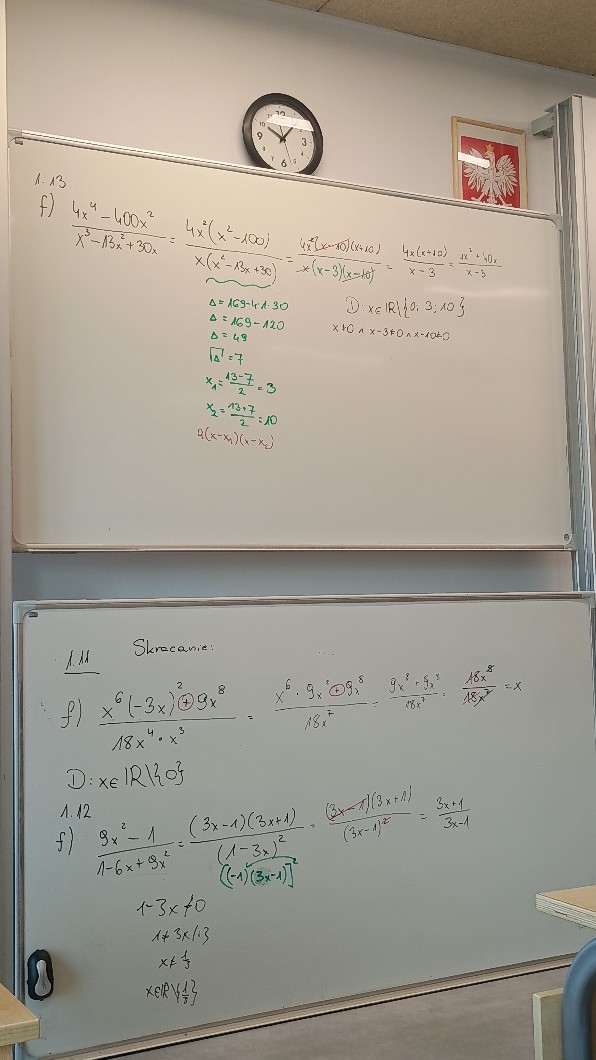 1.13
f) (4x⁴ - 400x²)/(x³ - 13x² + 30x) = (4x²(x² - 100))/(x(x² - 13x + 30)) = (4x²(x-10)(x+10))/(x(x-3)(x-10)) = (4x(x+10))/(x-3) = (4x² + 40x)/(x-3)
Δ = 169 - 4·1·30
Δ = 169 - 120
Δ = 49
√Δ = 7
x₁ = (13-7)/2 = 3
x₂ = (13+7)/2 = 10
a(x-x₁)(x-x₂)
D: x∈ℝ\{0; 3; 10}
x≠0 ∧ x-3≠0 ∧ x-10≠0
1.11 Skracanie:
f) (x⁶(-3x)² + 9x⁸)/(18x⁴ · x³) = (x⁶ · 9x² + 9x⁸)/(18x⁷) = (9x⁸ + 9x⁸)/(18x⁷) = (18x⁸)/(18x⁷) = x
D: x∈ℝ\{0}
1.12
f) (9x² - 1)/(1 - 6x + 9x²) = ((3x-1)(3x+1))/((1-3x)²) = ((3x-1)(3x+1))/((3x-1)²) = (3x+1)/(3x-1)
[(-1)(3x-1)]²
1-3x≠0
1≠3x /:3
x≠1/3
x∈ℝ\{1/3}
12
3
6
9
10